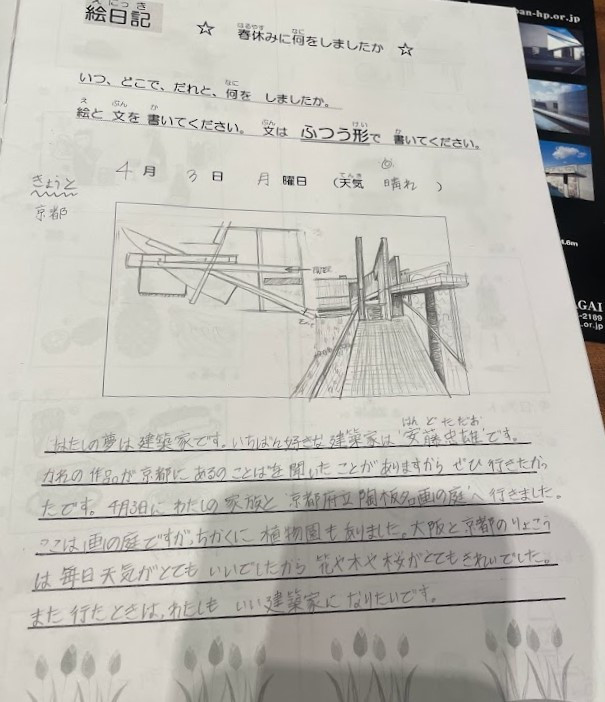 えにっき
絵日記
☆ 春休みに何をしましたか ☆
はるやす なに
いつ、どこで、だれと、何を しましたか。
なに
絵と 文を 書いてください。 文は ふつう形で 書いてください。
え ぶん か ぶん けい か
きょうと
京都
4 月 3 日 月 曜日 (天気 晴れ )
てんき は
わたしの夢は建築家です。いちばん好きな建築家は"安藤忠雄"です。
かれの作品が京都にあるのことばを聞いたことがありますから ぜひ行きたかっ
たです。4月3日に わたしの 家族と "京都府立陶板名画の庭"へ行きました。
ここは画の庭ですが、ちかくに 植物園も ありました。大阪と京都のりょこう
は 毎日天気がとても いいでしたから 花や木や桜がとてもきれいでした。
また 行たときは、わたしも いい建築家に なりたいです。
an-hp.or.jp
GAI
-2189
.or.jp